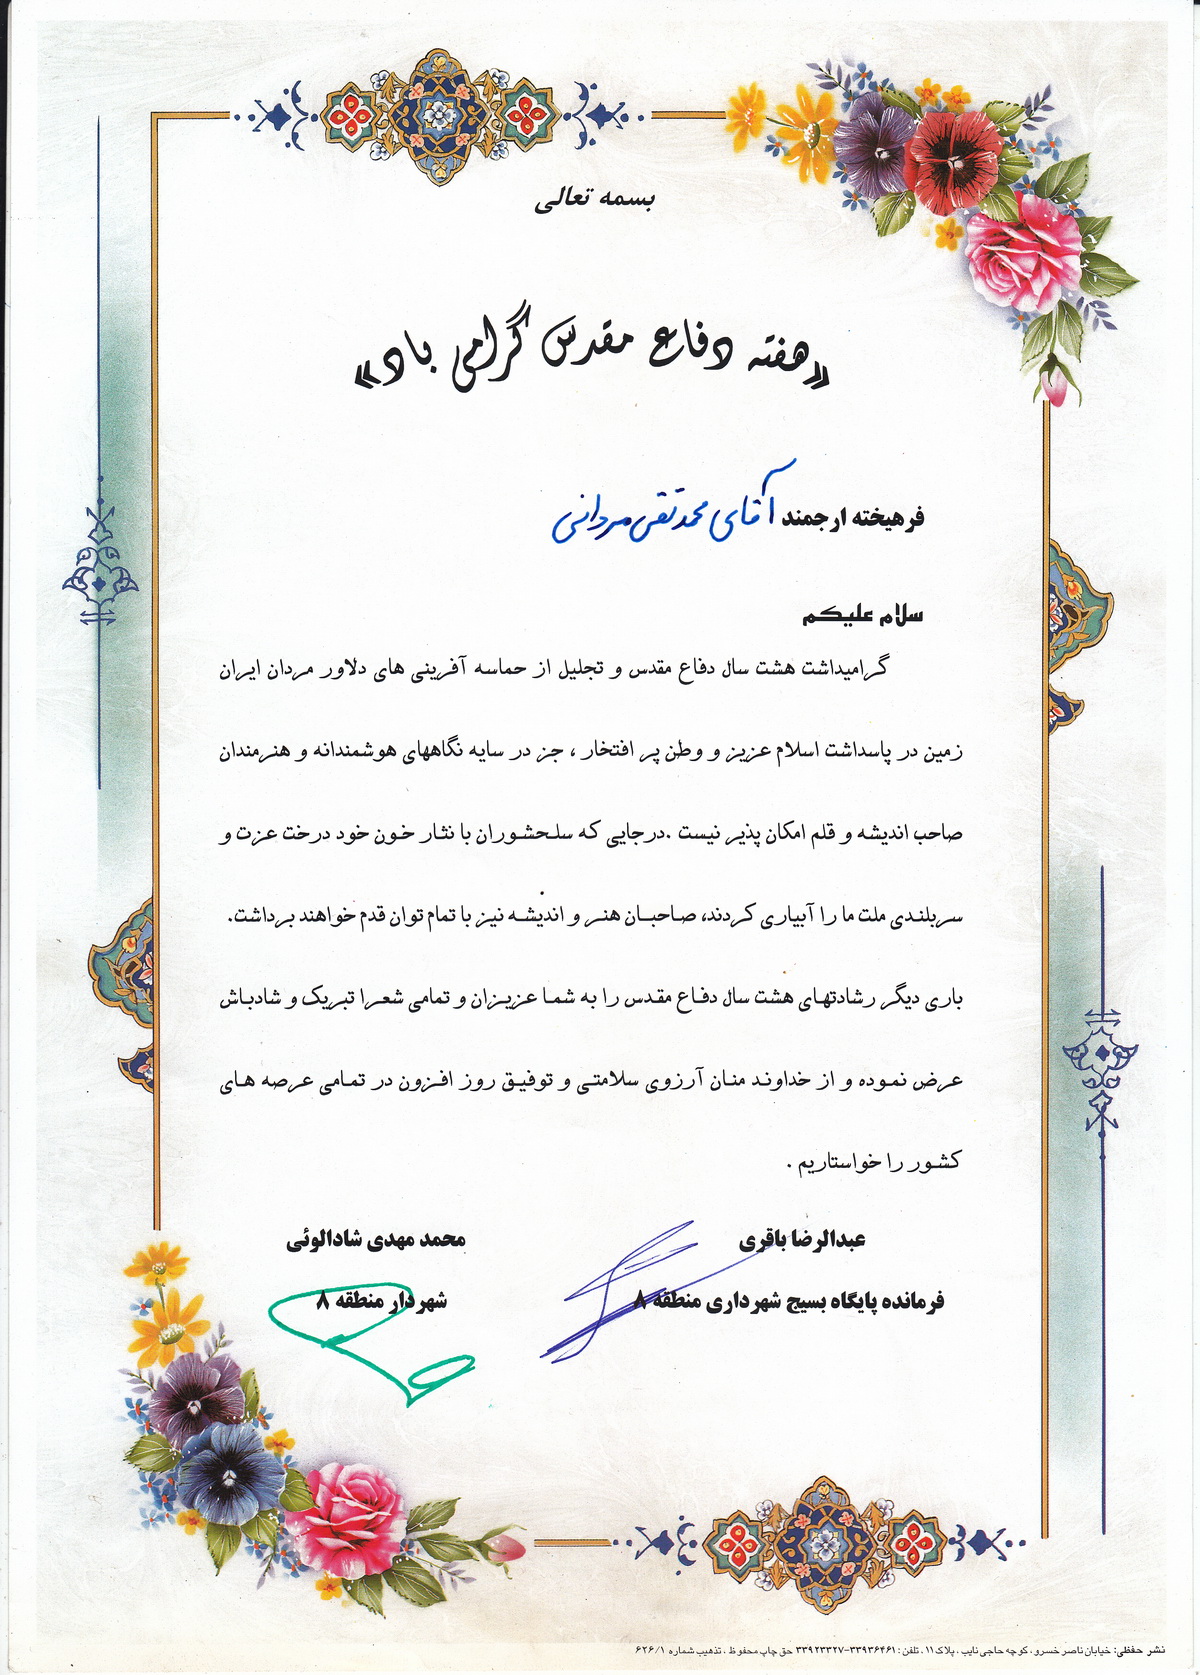 بسمه تعالی
«هفته دفاع مقدس گرامی باد»
فرهیخته ارجمند آقای محمدتقی مردانی
سلام علیکم
گرامیداشت هشت سال دفاع مقدس و تجلیل از حماسه آفرینی های دلاور مردان ایران
زمین در پاسداشت اسلام عزیز و وطن پر افتخار ، جز در سایه نگاههای هوشمندانه و هنرمندان
صاحب اندیشه و قلم امکان پذیر نیست .درجایی که سلحشوران با نثار خون خود درخت عزت و
سربلندی ملت ما را آبیاری کردند، صاحبان هنر و اندیشه نیز با تمام توان قدم خواهند برداشت.
باری دیگر رشادتهای هشت سال دفاع مقدس را به شما عزیزان و تمامی شعرا تبریک و شادباش
عرض نموده و از خداوند منان آرزوی سلامتی و توفیق روز افزون در تمامی عرصه های
کشور را خواستاریم .
عبدالرضا باقری
فرمانده پایگاه بسیج شهرداری منطقه ۸
محمد مهدی شادالوئی
شهردار منطقه ۸
نشر حفظی: خیابان ناصر خسرو، کوچه حاجی نایب، پلاک ۱۱، تلفن: ۳۳۹۳۶۴۶۱-۳۳۹۲۳۳۲۷ حق چاپ محفوظ، تذهیب شماره ۶۲۶/۱